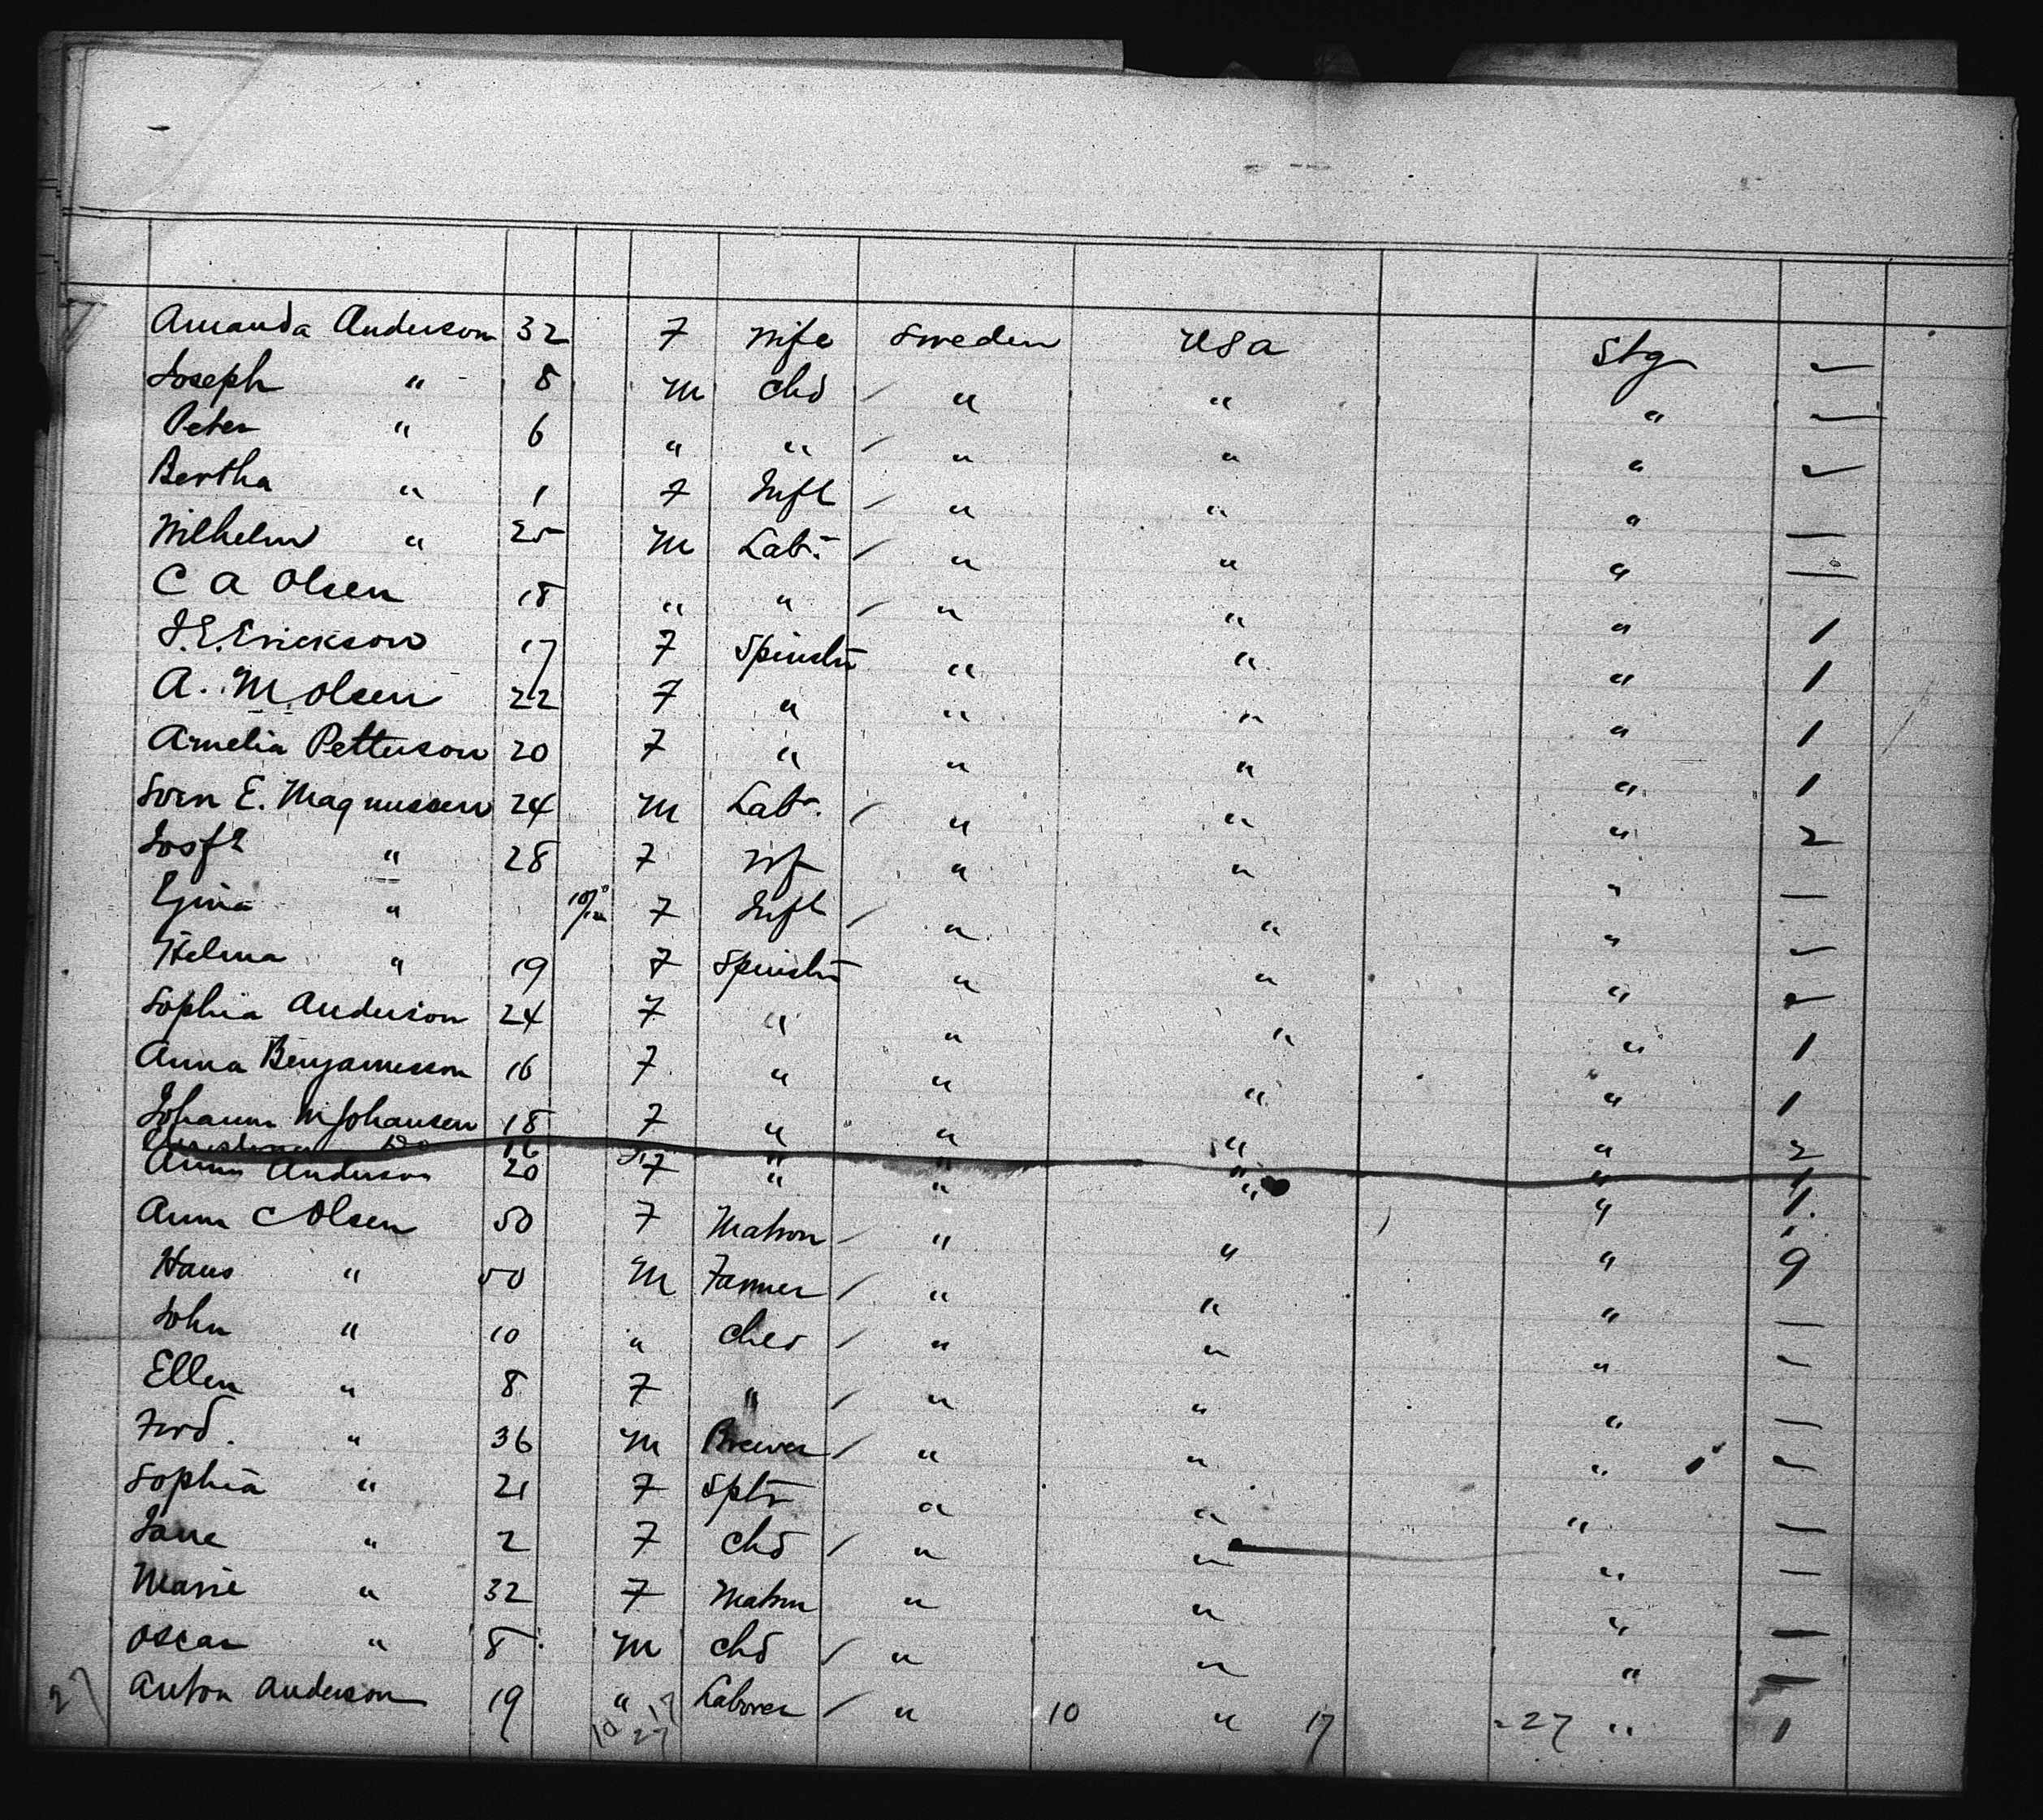 Amanda Anderson 32 F Wife Sweden USa Stg
Joseph " 8 M Chd / " " "
Peter " 6 " " / " " "
Bertha " 1 F Inft / " " "
Wilhelm " 25 M Labr. / " " "
C A Olsen 18 " " / " " " 1
J. E. Erickson 17 F Spinstr " " " 1
A. M. Olsen 22 F " " " " 1
Amelia Petterson 20 F " " " " 1
Sven E. Magnussen 24 M Labr. / " " " 2
Josf " 28 F Wf " " "
" 10/12 F Inft / " " "
Helma " 19 F Spinstr " " "
Sophia Anderson 24 F " " " " 1
Anna Benjamesson 16 F " " " " 1
Johanna M Johansen 18 F " " " " 2
Do 16 " " " " 1
Anna Anderson 20 F " " " " 1.
Anna C Olsen 50 F Matron / " " " 9
Hans " 50 M Farmer / " " "
John " 10 " Chd / " " "
Ellen " 8 F " / " " "
Ferd. " 36 M Brewer / " " "
Sophia " 21 F Sptr " " "
Jane " 2 F Chd / " " "
Marie " 32 F Matrn " " "
Oscar " 8 M Chd / " " "
27 Anton Anderson 19 " Laborer / " 10 " 17 27 " 1
10 17
27